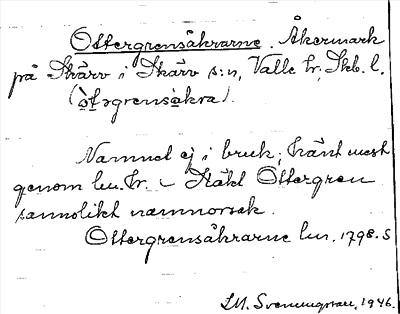 Ottergrensåkrarne. Åkermark
på Skärv i Skärv s:n, Valle hr, Skb. l.
(òtərgrensåkra).
Namnet ej i bruk, känt mest
genom lm. hr. – Släkt Ottergren
sannolikt namnorsak.
Ottergrensåkrarne lm. 1798. S
1946.